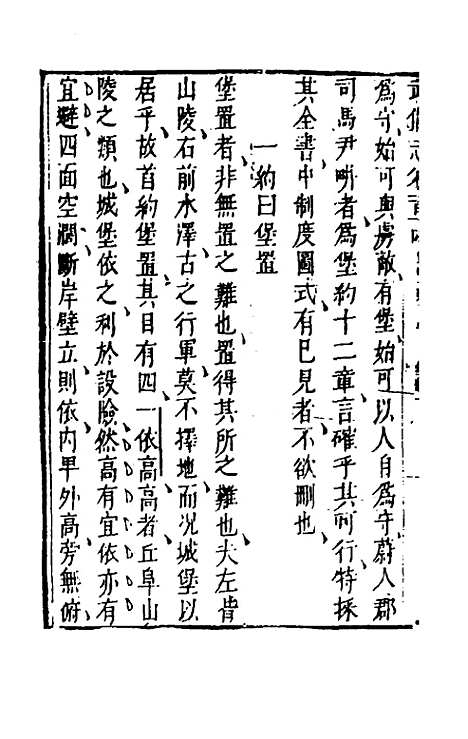 為守始可與虜敵有堡始可以人自為守蔚人郡
司馬尹畊者為堡約十二章言確乎其可行特採
其全書中制度圖式有已見者不欲刪也
一約曰堡置
堡置者非無置之難也置得其所之難也夫左背
山陵右前水澤古之行軍莫不擇地而况城堡以
居乎故首約堡置其目有四一依高高者丘阜山
陵之類也城堡依之利於設險然高有宜依亦有
宜避四面空濶斷岸壁立則依内卑外高旁無俯